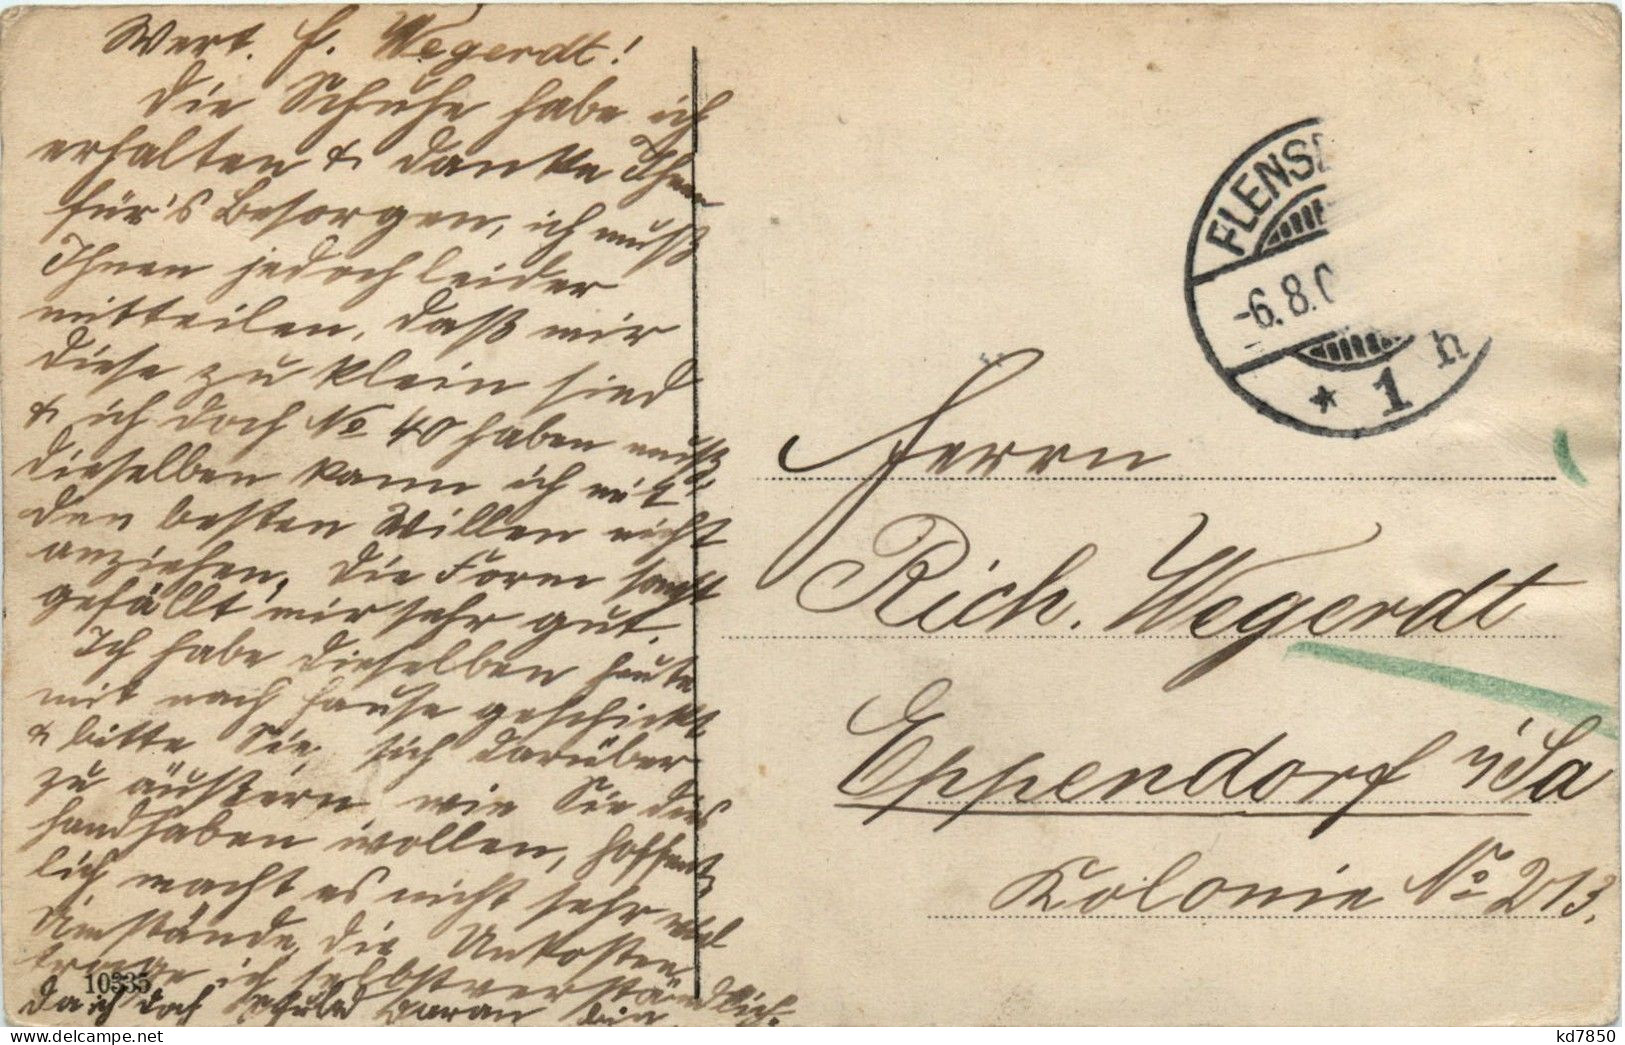 Wert. H. Wegerdt!
Die Schuhe habe ich
erhalten & danke Ihnen
für's Besorgen, ich muß
Ihnen jedoch leider
mitteilen, daß mir
diese zu klein sind
& ich doch No 40 haben muß
dieselben kann ich mit
den besten Willen nicht
anziehen, die Form sonst
gefällt mir sehr gut.
Ich habe dieselben heute
mit nach Hause geschickt
& bitte Sie, sich darüber
zu äußern wie Sie dies
handhaben wollen, hoffent
lich macht es nicht sehr viel
Umstände, die Unkosten
trage ich selbstverständlich.
da ich doch Schuld daran bin
10335
FLENSB
-6.8.0
* 1 h
Herrn
Rich. Wegerdt
Eppendorf i/Sa
Kolonie No 213.
kd7850